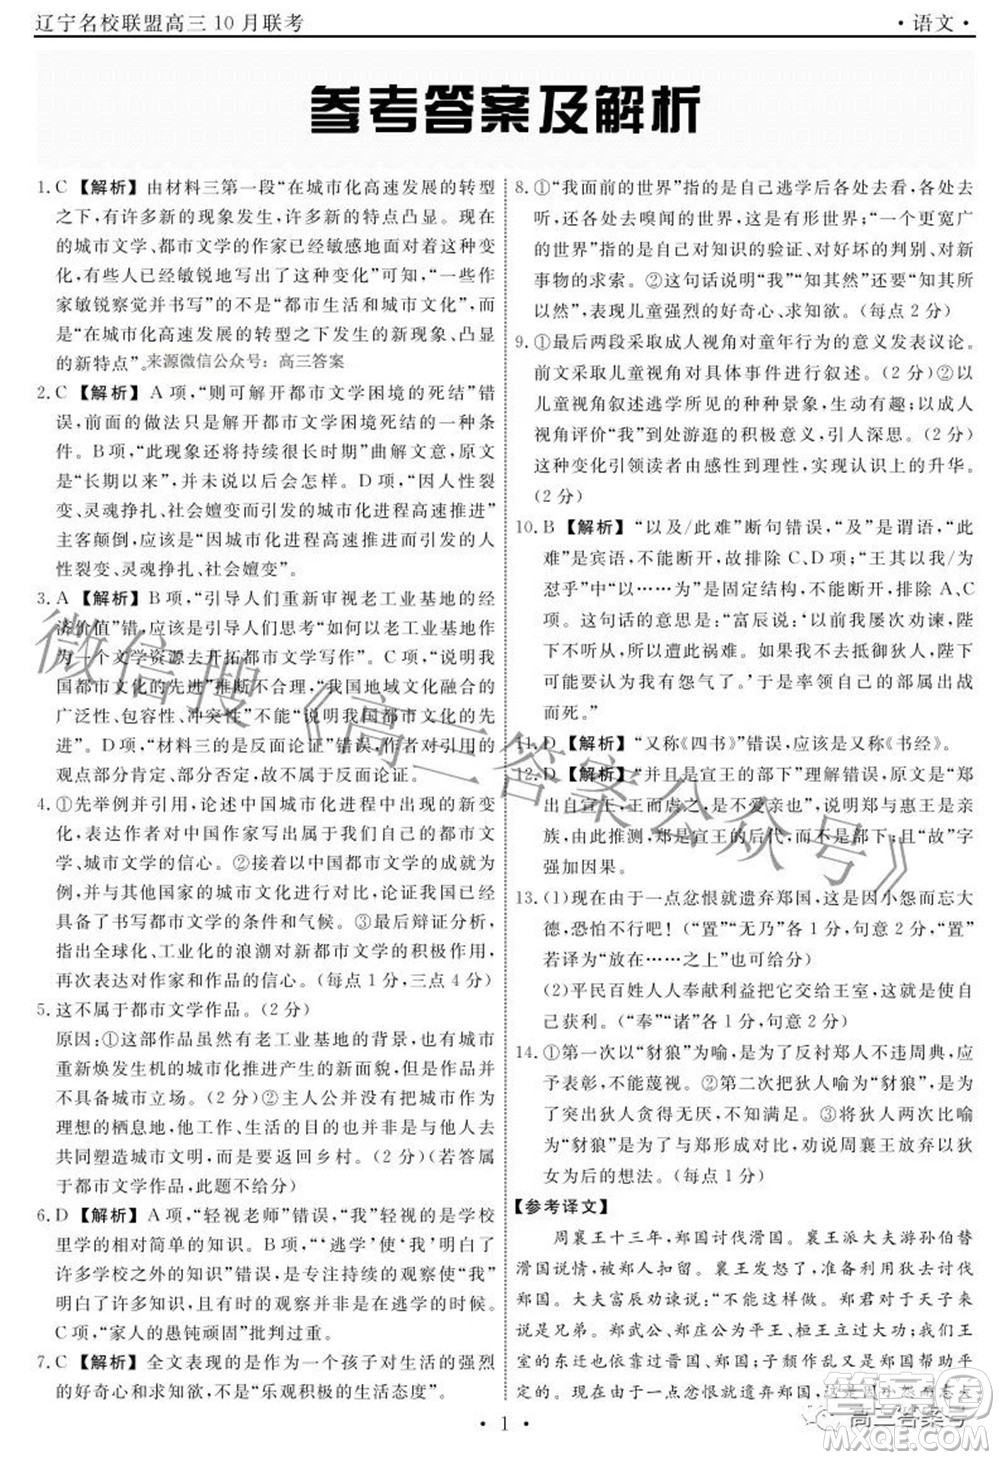 辽宁名校联盟高三10月联考
·语文·
参考答案及解析
1. C 【解析】由材料三第一段“在城市化高速发展的转型
之下,有许多新的现象发生,许多新的特点凸显。现在
的城市文学、都市文学的作家已经敏感地面对了这种变
化,有些人已经敏锐地写出了这种变化”可知,“一些作
家敏锐察觉并书写”的不是“都市生活和城市文化”,而
是“在城市化高速发展的转型之下发生的新现象、凸显
的新特点”。来源微信公众号:高三答案
2. C 【解析】A项,“则可解开都市文学困境的死结”错
误,前面的做法只是解开都市文学困境死结的一种条
件。B项,“此现象还将持续很长时期”曲解文意,原文
是“长期以来”,没有说以后会怎样。D项,“因人性裂
变、灵魂挣扎、社会嬗变引发的城市化进程高速推进”
主客颠倒,应该是“因城市化进程高速推进而引发的人
性裂变、灵魂挣扎、社会嬗变”。
3. A 【解析】B项,“引导人们重新审视老工业基地的经
济价值”错,应该是引导人们思考“如何以老工业基地作
为一个文学资源去开拓都市文学写作”。C项,“说明我
国都市文化的先进”推断不合理,“我国地域文化融合的
广泛性、包容性、冲突性”不能“说明我国都市文化的先
进”。D项,“材料三的是反面论证”错误,材料三的相关
观点部分肯定,部分否定,不属于反面论证。
4. ①先举例并引用,论述中国城市化进程中出现的新变
化,表达作者对中国作家写出属于我们自己的都市文
学、城市文学的信心。②接着以中国都市文学的成就为
例,并与其他国家的城市文化进行对比,论证我们已经
具备了书写都市文学的条件和气候。③最后辩证分析,
指出全球化、工业化的浪潮对新都市文学的积极作用,
再次表达对作家和作品的信心。(每点1分,三点4分)
5. 这不属于都市文学作品。(2分)
原因:①这部作品虽然有老工业基地的背景,也有城市
重新焕发生机的历程,但对城市推进产生的影响缺乏了
解,缺少城市立场。(2分)②主人公并没有把城市作为
理想的栖息地,工作、生活的目标也不是为了与其他人
共同塑造城市文明,而是要回去乡村。(2分)(若答属
于都市文学作品,此题不给分)
6. D 【解析】A项,“轻视老师”错误,“我”轻视的是学校
里学的相对简单的知识。B项,“‘逃学’使‘我’明白了
许多学校之外的知识”错误,是专注持续的观察使“我”
明白了许多知识,且有时的观察并非是在逃学的时候。
C项,“家人的愚钝顽固”批判过重。
7. C 【解析】全文表现的是作为一个孩子对生活的强烈
的好奇心和求知欲,不是“乐观积极的生活态度”。
8. ①“我面前的世界”指的是自己逃学后处处去看,处处去
听,处处去嗅闻的世界,这是有形世界;“一个更宽广
的世界”指的是自己对知识的验证、对好坏的判别、对新
事物的求索。②这句话说明“我”“知其然”“知其所
以然”,表现儿童强烈的好奇心、求知欲。(每点2分)
9. ①最后两段采取成人视角对童年行为的意义发表议论。
前文采取儿童视角进行叙述。(2分)②在前文中,以
儿童视角叙述逃学所见的种种景象,生动逼真;以成人
视角评价“我”到处游逛的积极意义,引人深思。(2分)
这种变化引领读者由感性到理性,实现认识上的升华。
(2分)
10. B 【解析】“以及/此难”断句错误,“及”是谓语,“此
难”是宾语,不能断开,故排除C、D项;“王其以我/为
怼乎”中“以……为”是固定结构,不能断开,排除A、C
项。这句话的意思是:“富辰说:‘以前我屡次劝谏,陛
下不听从,因此遭遇此祸难。如果我不去抵御狄人,陛
下可能要认为我有怨气了。’于是率领自己的部属出战
而死。”
11. D 【解析】“又称《四书》”错误,应该是又称《书经》。
12. D 【解析】“并且是宣王的部下”理解错误,原文是“郑
出自宣王,王而虐之,是不爱亲也”,说明郑与惠王是亲
族,由此推测,郑是宣王的后代,而不是部下;“故”字
强加因果。
13. (1)(如果)由于一点忿恨就遗弃郑国,这是因小怨而忘大
德,恐怕不行吧!(“置”“无乃”各1分,句意2分,“置”
若译为“放在……之上”也可得分)
(2)平民百姓人人奉献利益把它交给王室,这是使他自
己获利。(“奉”“诸”各1分,句意2分)
14. ①第一次以“豺狼”为喻,是为了反衬郑人不违周典,应
予尊重,不能蔑视。②第二次把狄人喻为“豺狼”,是为
了突出狄人贪得无厌,不知满足。③将狄人两次比喻
为“豺狼”是为了与郑形成对比,劝说周襄王放弃以狄
女为后的想法。(每点1分)
【参考译文】
周襄王十三年,郑国讨伐滑国。襄王派大夫游孙伯为
滑国说情,被郑人扣留。襄王大怒,准备利用狄去讨伐
郑国。大夫富辰劝谏说:“不能这样做。郑君和天子是
兄弟。郑武公、郑庄公为平王、桓王立过大功;我们王
室的东迁靠的是晋国、郑国;子颓作乱又是郑国帮助平
定的。现在由于一点忿恨就遗弃郑国,这是因小怨而忘大
· 1 ·
微信搜《高三答案公众号》
高三答案号
MXQE.COM